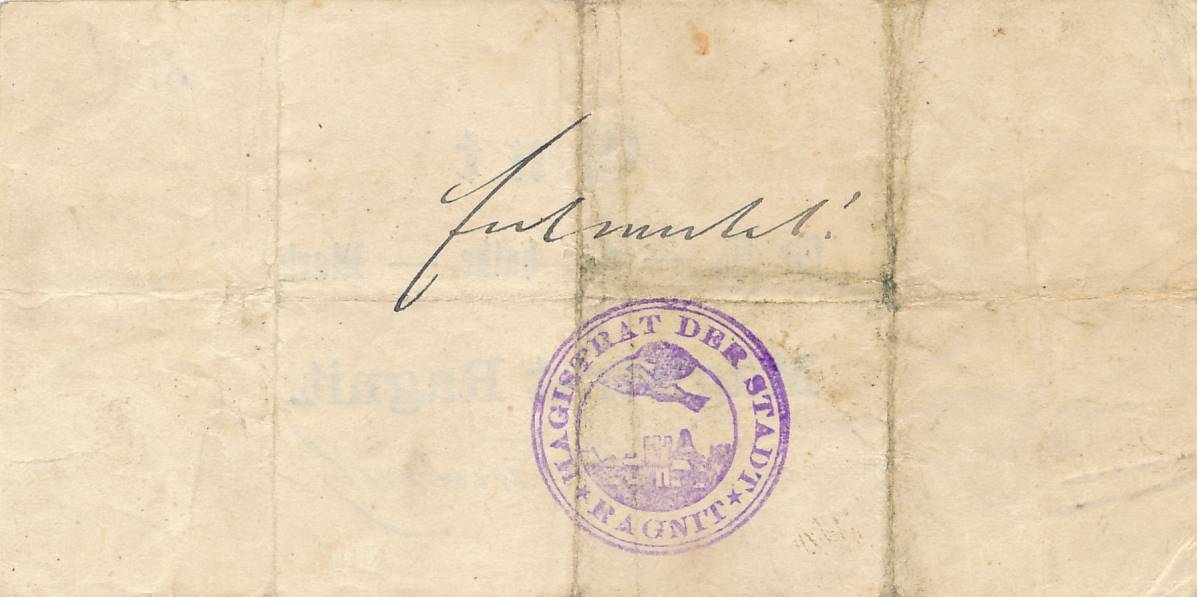 Entwertet!
MAGISTRAT DER STADT
RAGNIT